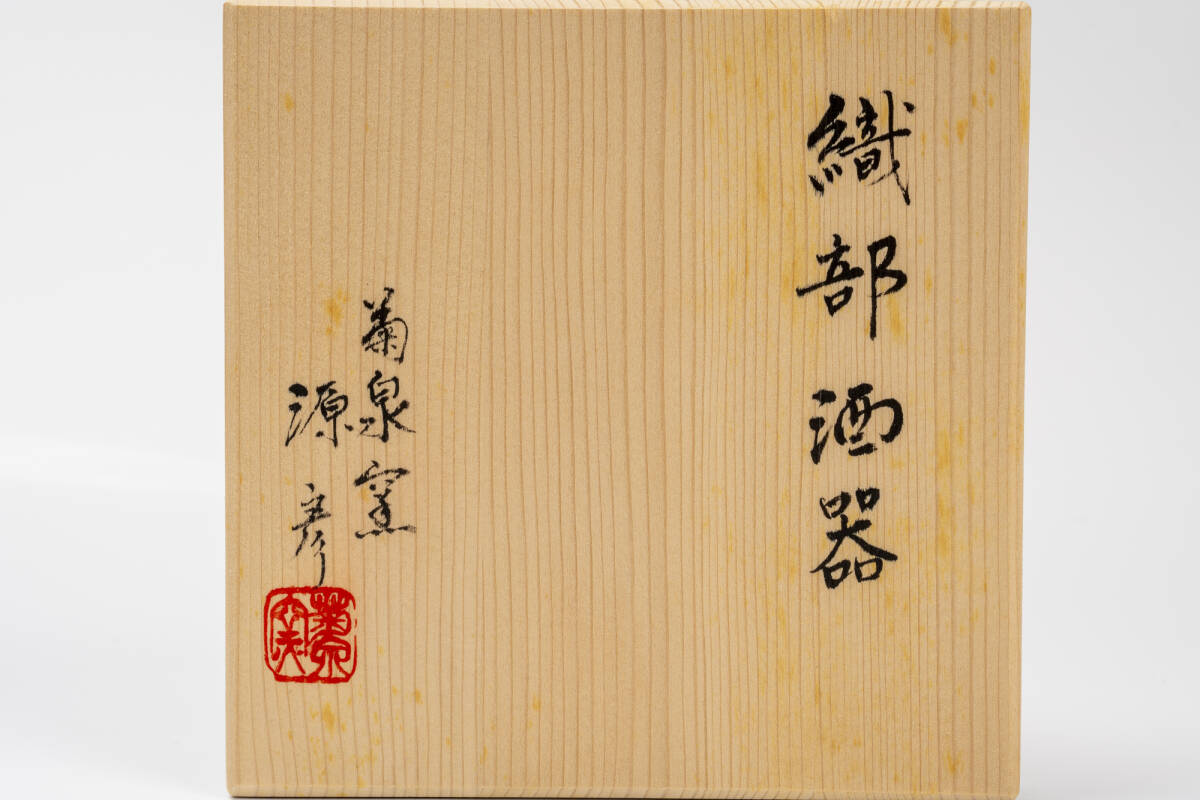 織部酒器
菊泉窯
源彦